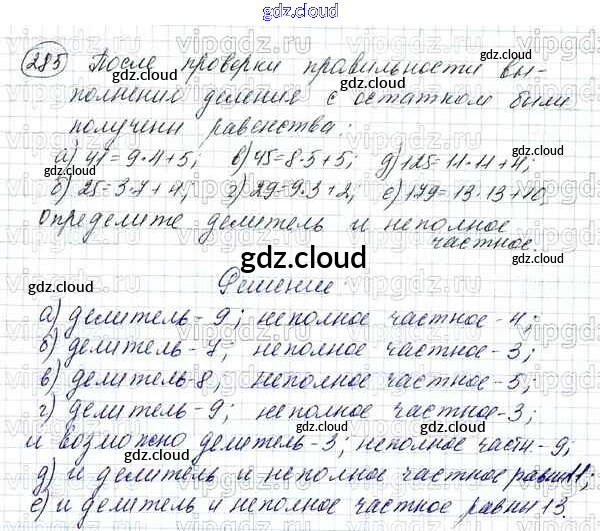 gdz.cloud
285 После проверки правильности вы-
полнения деления с остатком были
получены равенства:
а) 41=9·4+5; в) 45=8·5+5; д) 125=11·11+4;
б) 25=3·7+4; г) 29=9·3+2; е) 179=13·13+10.
Определите делитель и неполное
частное.
gdz.cloud
Решение
а) делитель-9; неполное частное-4;
б) делитель-7; неполное частное-3;
в) делитель-8, неполное частное-5;
г) делитель-9; неполное частное-3;
и возможно делитель-3; неполное частн.-9;
д) и делитель и неполное частное равны 11;
е) и делитель и неполное частное равны 13.
gdz.cloud